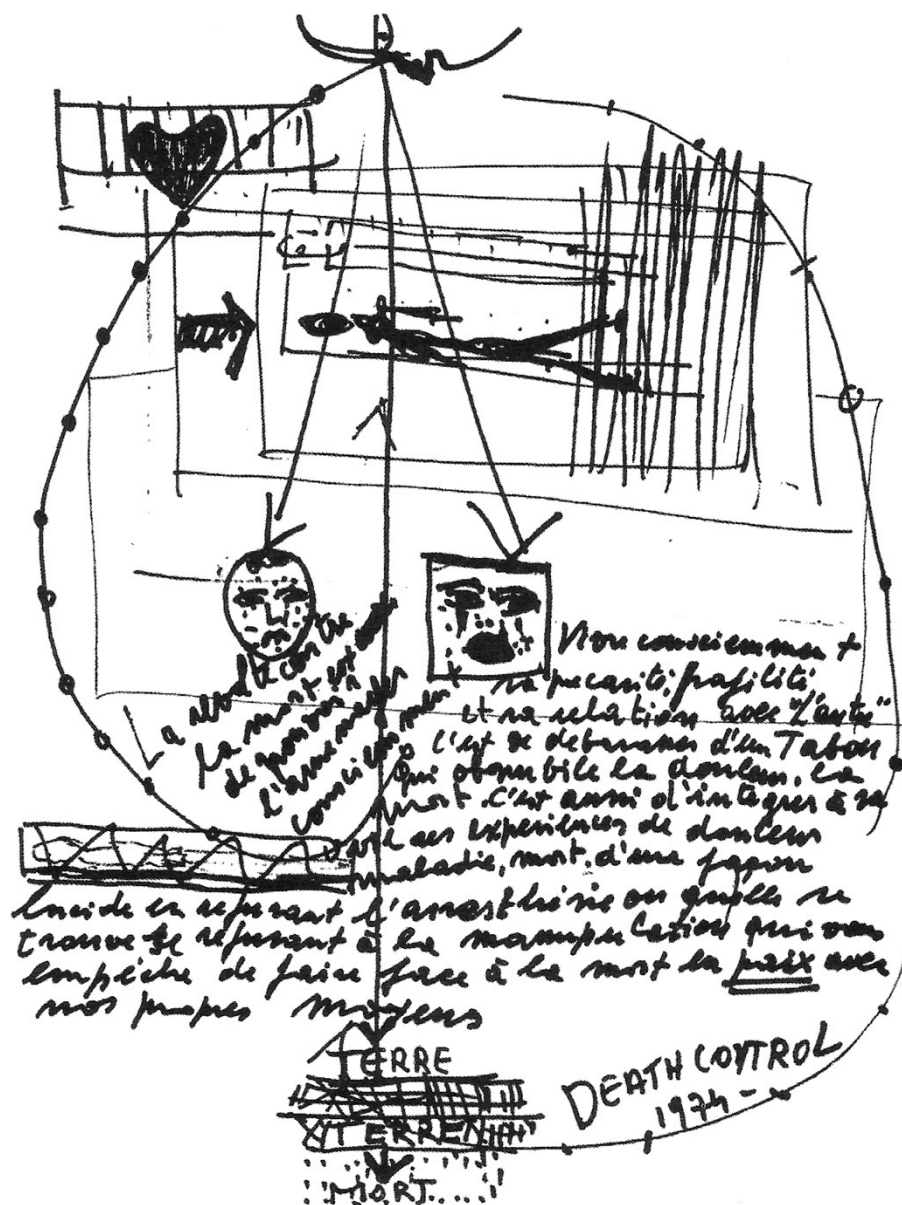 La révolte contre
la mort est
de pouvoir
l'assumer
consciemment
Non consciemment
sa précarité, fragilité
et sa relation avec "l'autre"
c'est se débarrasser d'un Tabou
qui obnubile la douleur, la
mort. C'est aussi d'intégrer à sa
vie ses expériences de douleur
maladie, mort, d'une façon
lucide en refusant l'anesthésie on quelles se
trouve se refusant à la manipulation qui vous
empêche de faire face à la mort en paix avec
nos propres moyens
TERRE
TERRE
MORT
DEATH CONTROL
1974 -